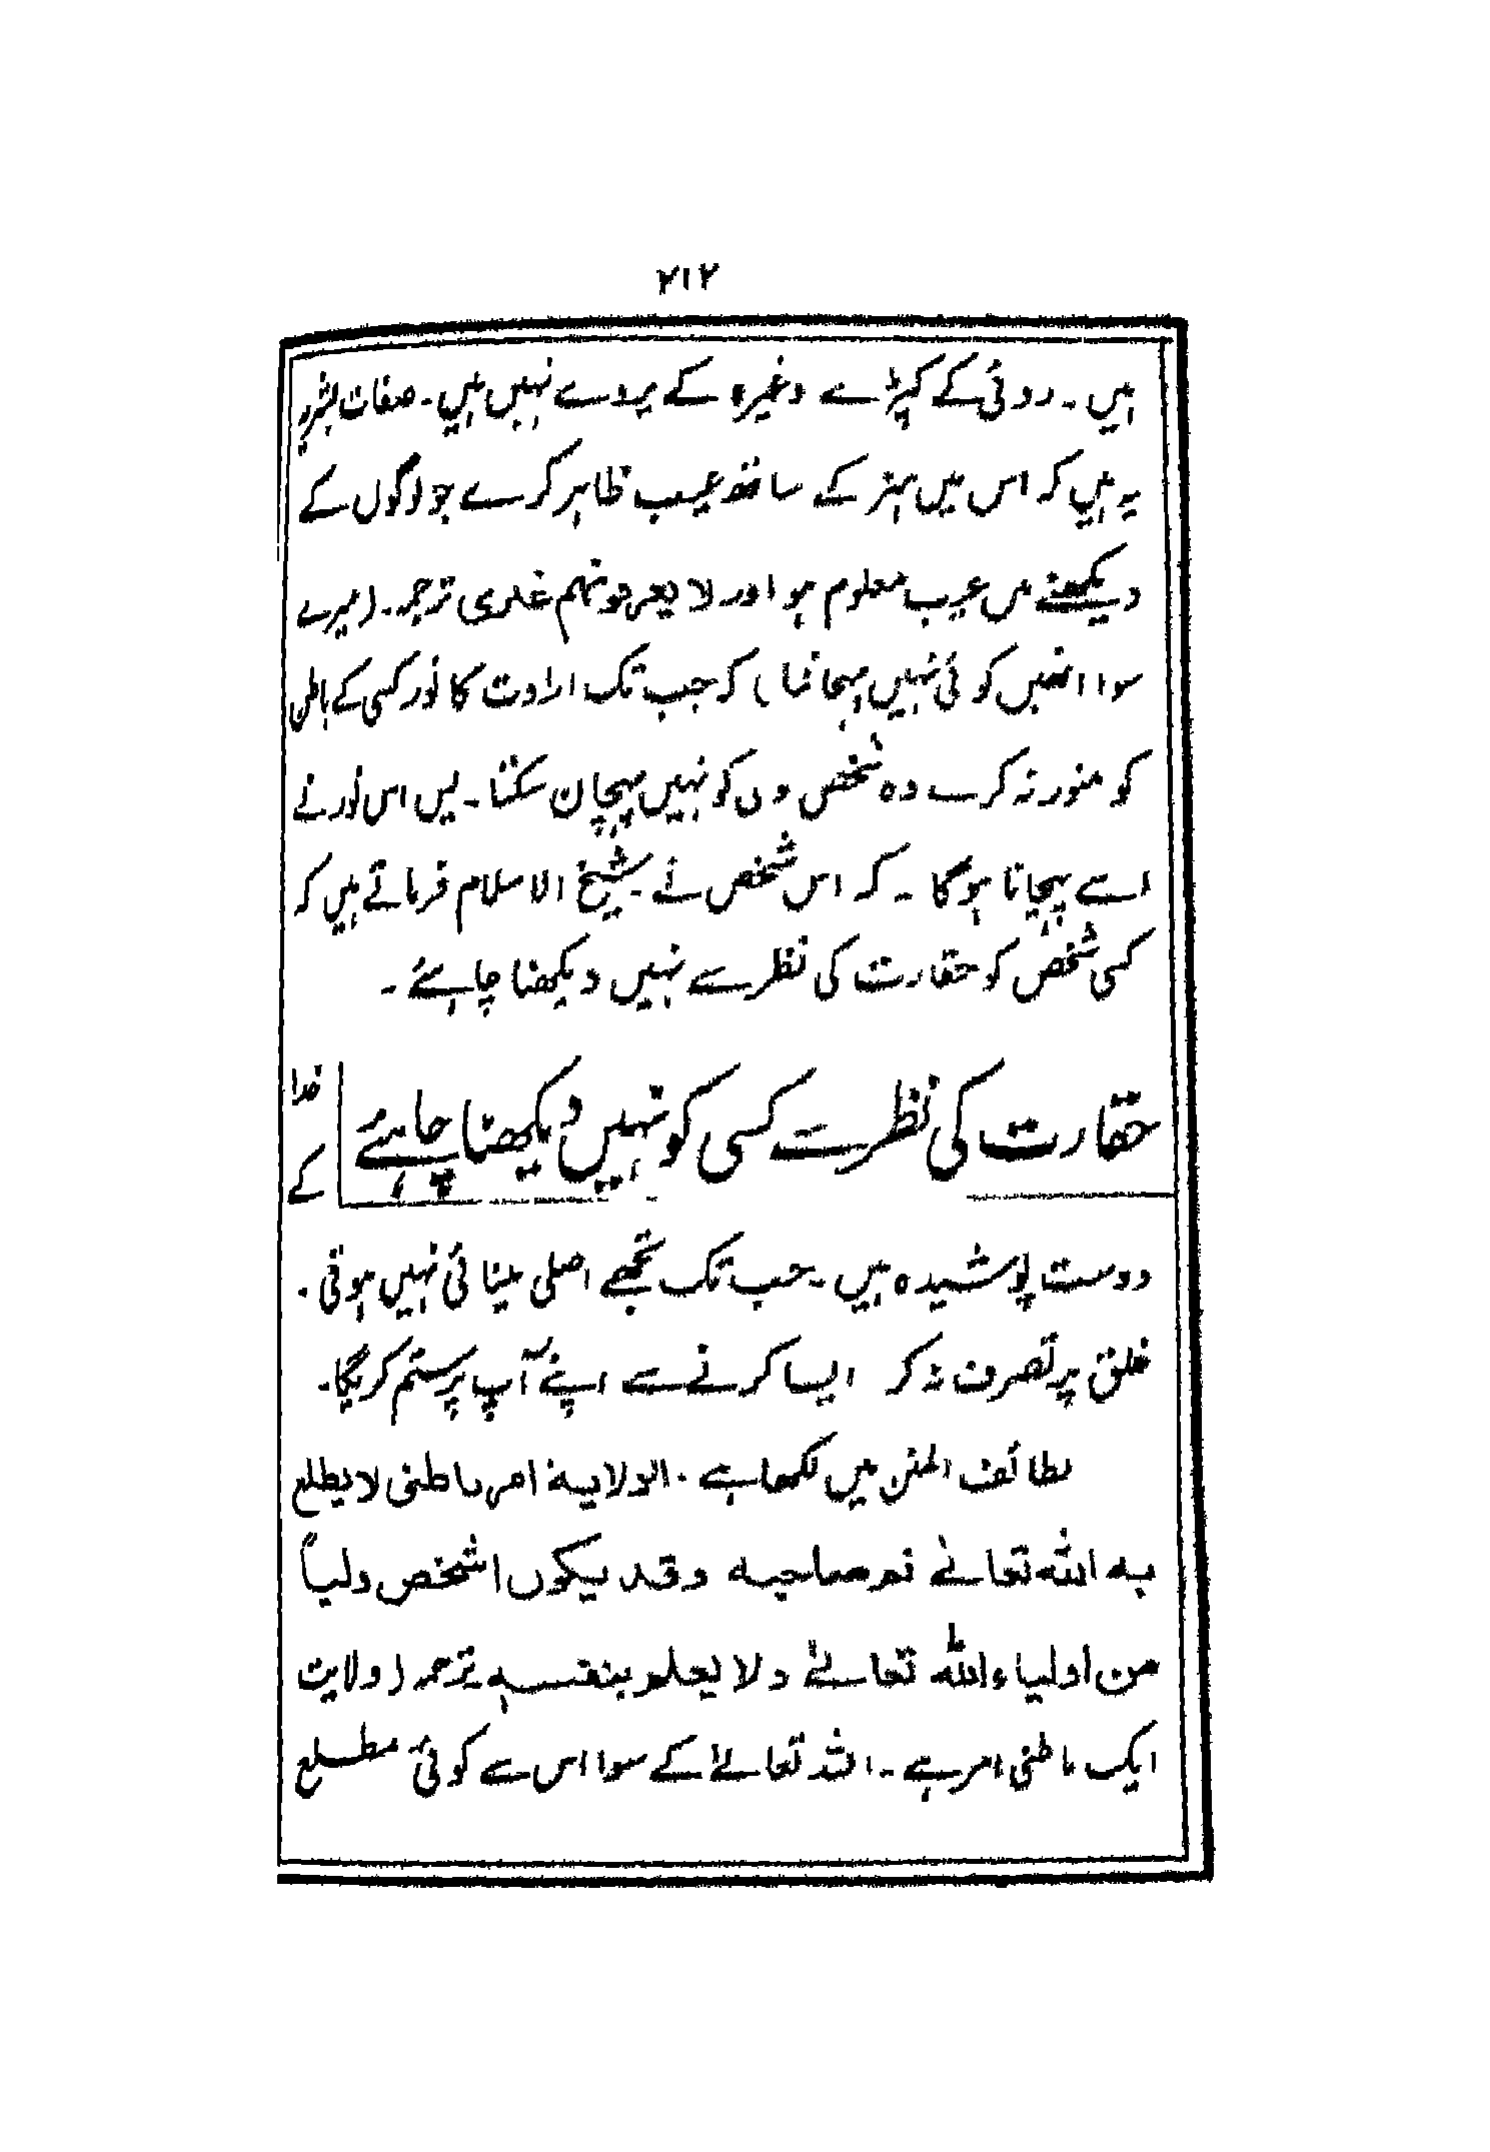 ۲۱۲
ہیں۔ روئی کے کپڑے وغیرہ کے پردے نہیں ہیں۔ صفات بشریہ
یہ ہیں کہ اس میں ہنر کے ساتھ عیب ظاہر کرے جو لوگوں کے
دیکھنے میں عیب معلوم ہو اور لا یعرفونہم غیری ترجمہ۔ (میرے
سوا انھیں کوئی نہیں پہچانتا) کہ جب تک ارادت کا نور کسی کے باطن
کو منور نہ کرے وہ شخص ولی کو نہیں پہچان سکتا۔ پس اس نور نے
اسے پہچانا ہوگا ۔ کہ اس شخص نے۔ شیخ الاسلام فرماتے ہیں کہ
کسی شخص کو حقارت کی نظر سے نہیں دیکھنا چاہئے۔
حقارت کی نظر سے کسی کو نہیں دیکھنا چاہئے
خدا
کے
دوست پوشیدہ ہیں۔ جب تک تجھے اصلی بینائی نہیں ہوتی۔
خلق پر تصرف نہ کر ایسا کرنے سے اپنے آپ پر ستم کریگا۔
لطائف المنن میں لکھا ہے۔ الولایة امر باطنی لا یطلع
بہ اللہ تعالےٰ ثم صاحبہ وقد یکون اشخص ولیاً
من اولیاء اللہ تعالےٰ ولا یعلم بنفسہ ترجمہ (ولایت
ایک باطنی امر ہے۔ اللہ تعالےٰ کے سوا اس سے کوئی مطلع